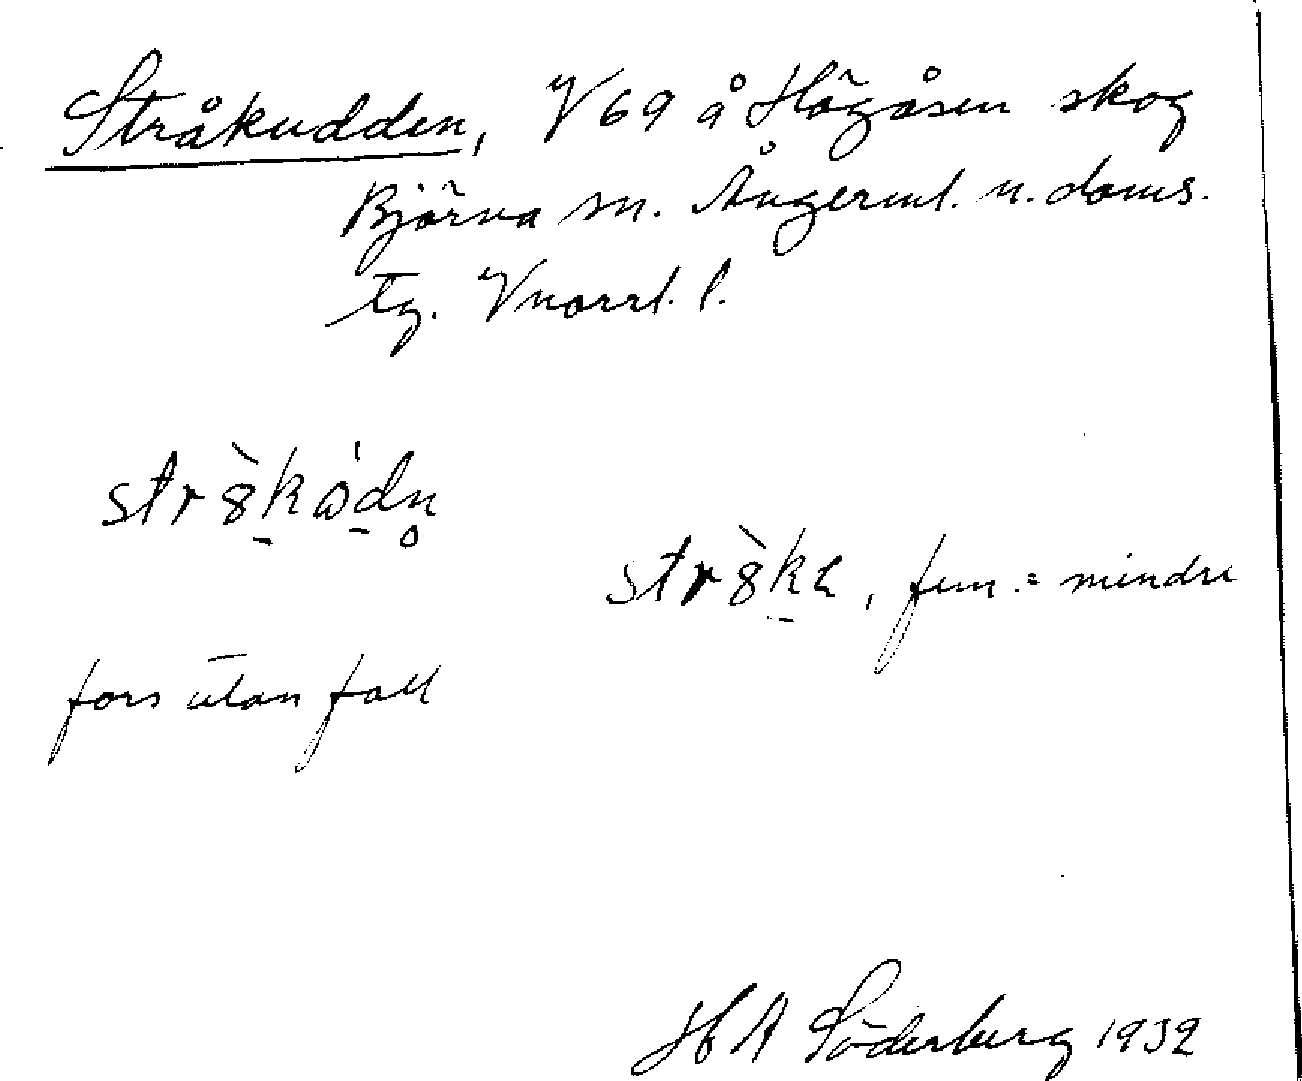 Stråkudden, V 69 å Högåsen skog
Björna sn. Ångerml. n. doms.
tg. Vnorrl. l.
fem. = mindre
fors utan fall
H A Söderberg 1932